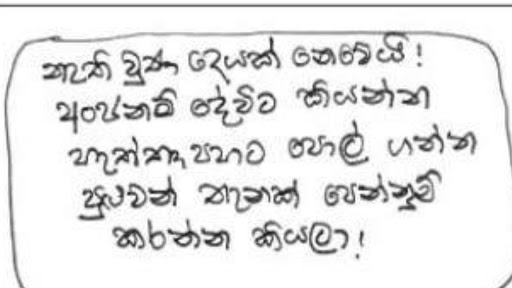 නැති වුණ දෙයක් නෙවෙයි!
අංජනම් දේවිට කියන්න
හැත්තෑපහට පොල් ගන්න
පුළුවන් තැනක් පෙන්නුම්
කරන්න කියලා!